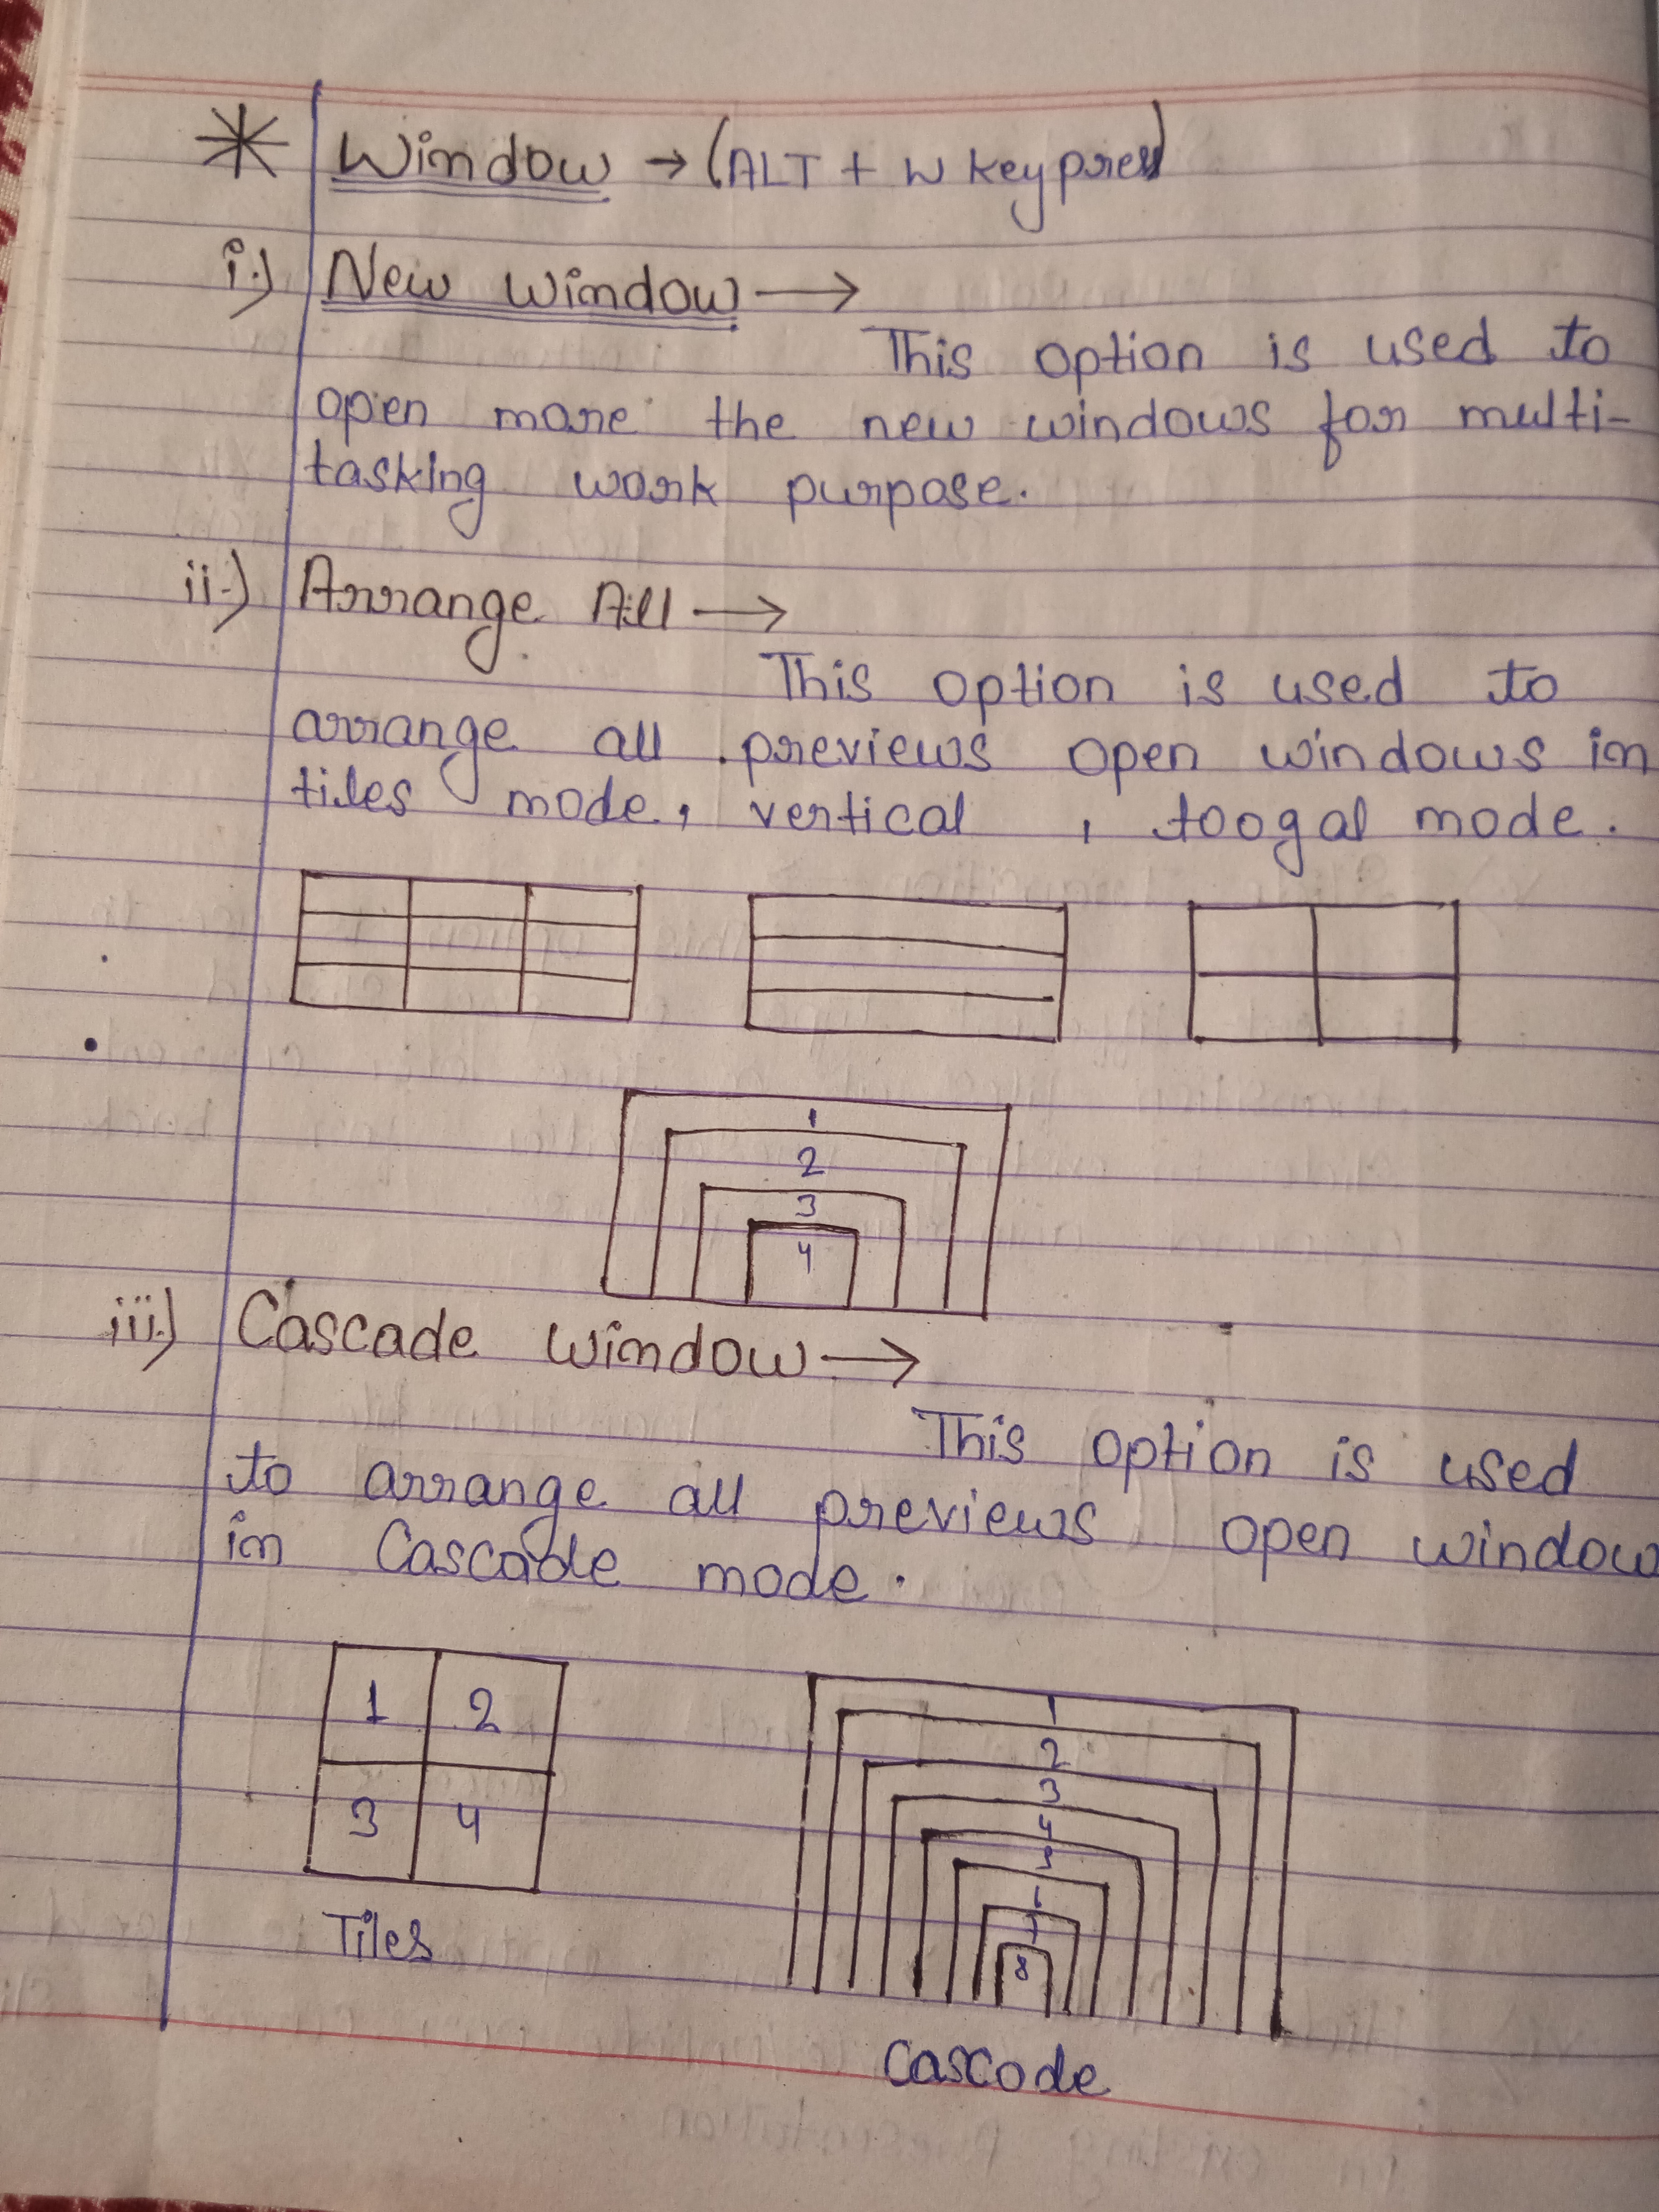 * Window → (ALT + W key press)
i.) New Window →
This option is used to
open more the new windows for multi-
tasking work purpose.
ii.) Arrange All →
This option is used to
arrange all previews open windows in
tiles mode, vertical , toogal mode.
1
2
3
4
iii.) Cascade Window →
This option is used
to arrange all previews open window
in Cascade mode.
1 2
3 4
Tiles
1
2
3
4
5
6
7
8
Cascode